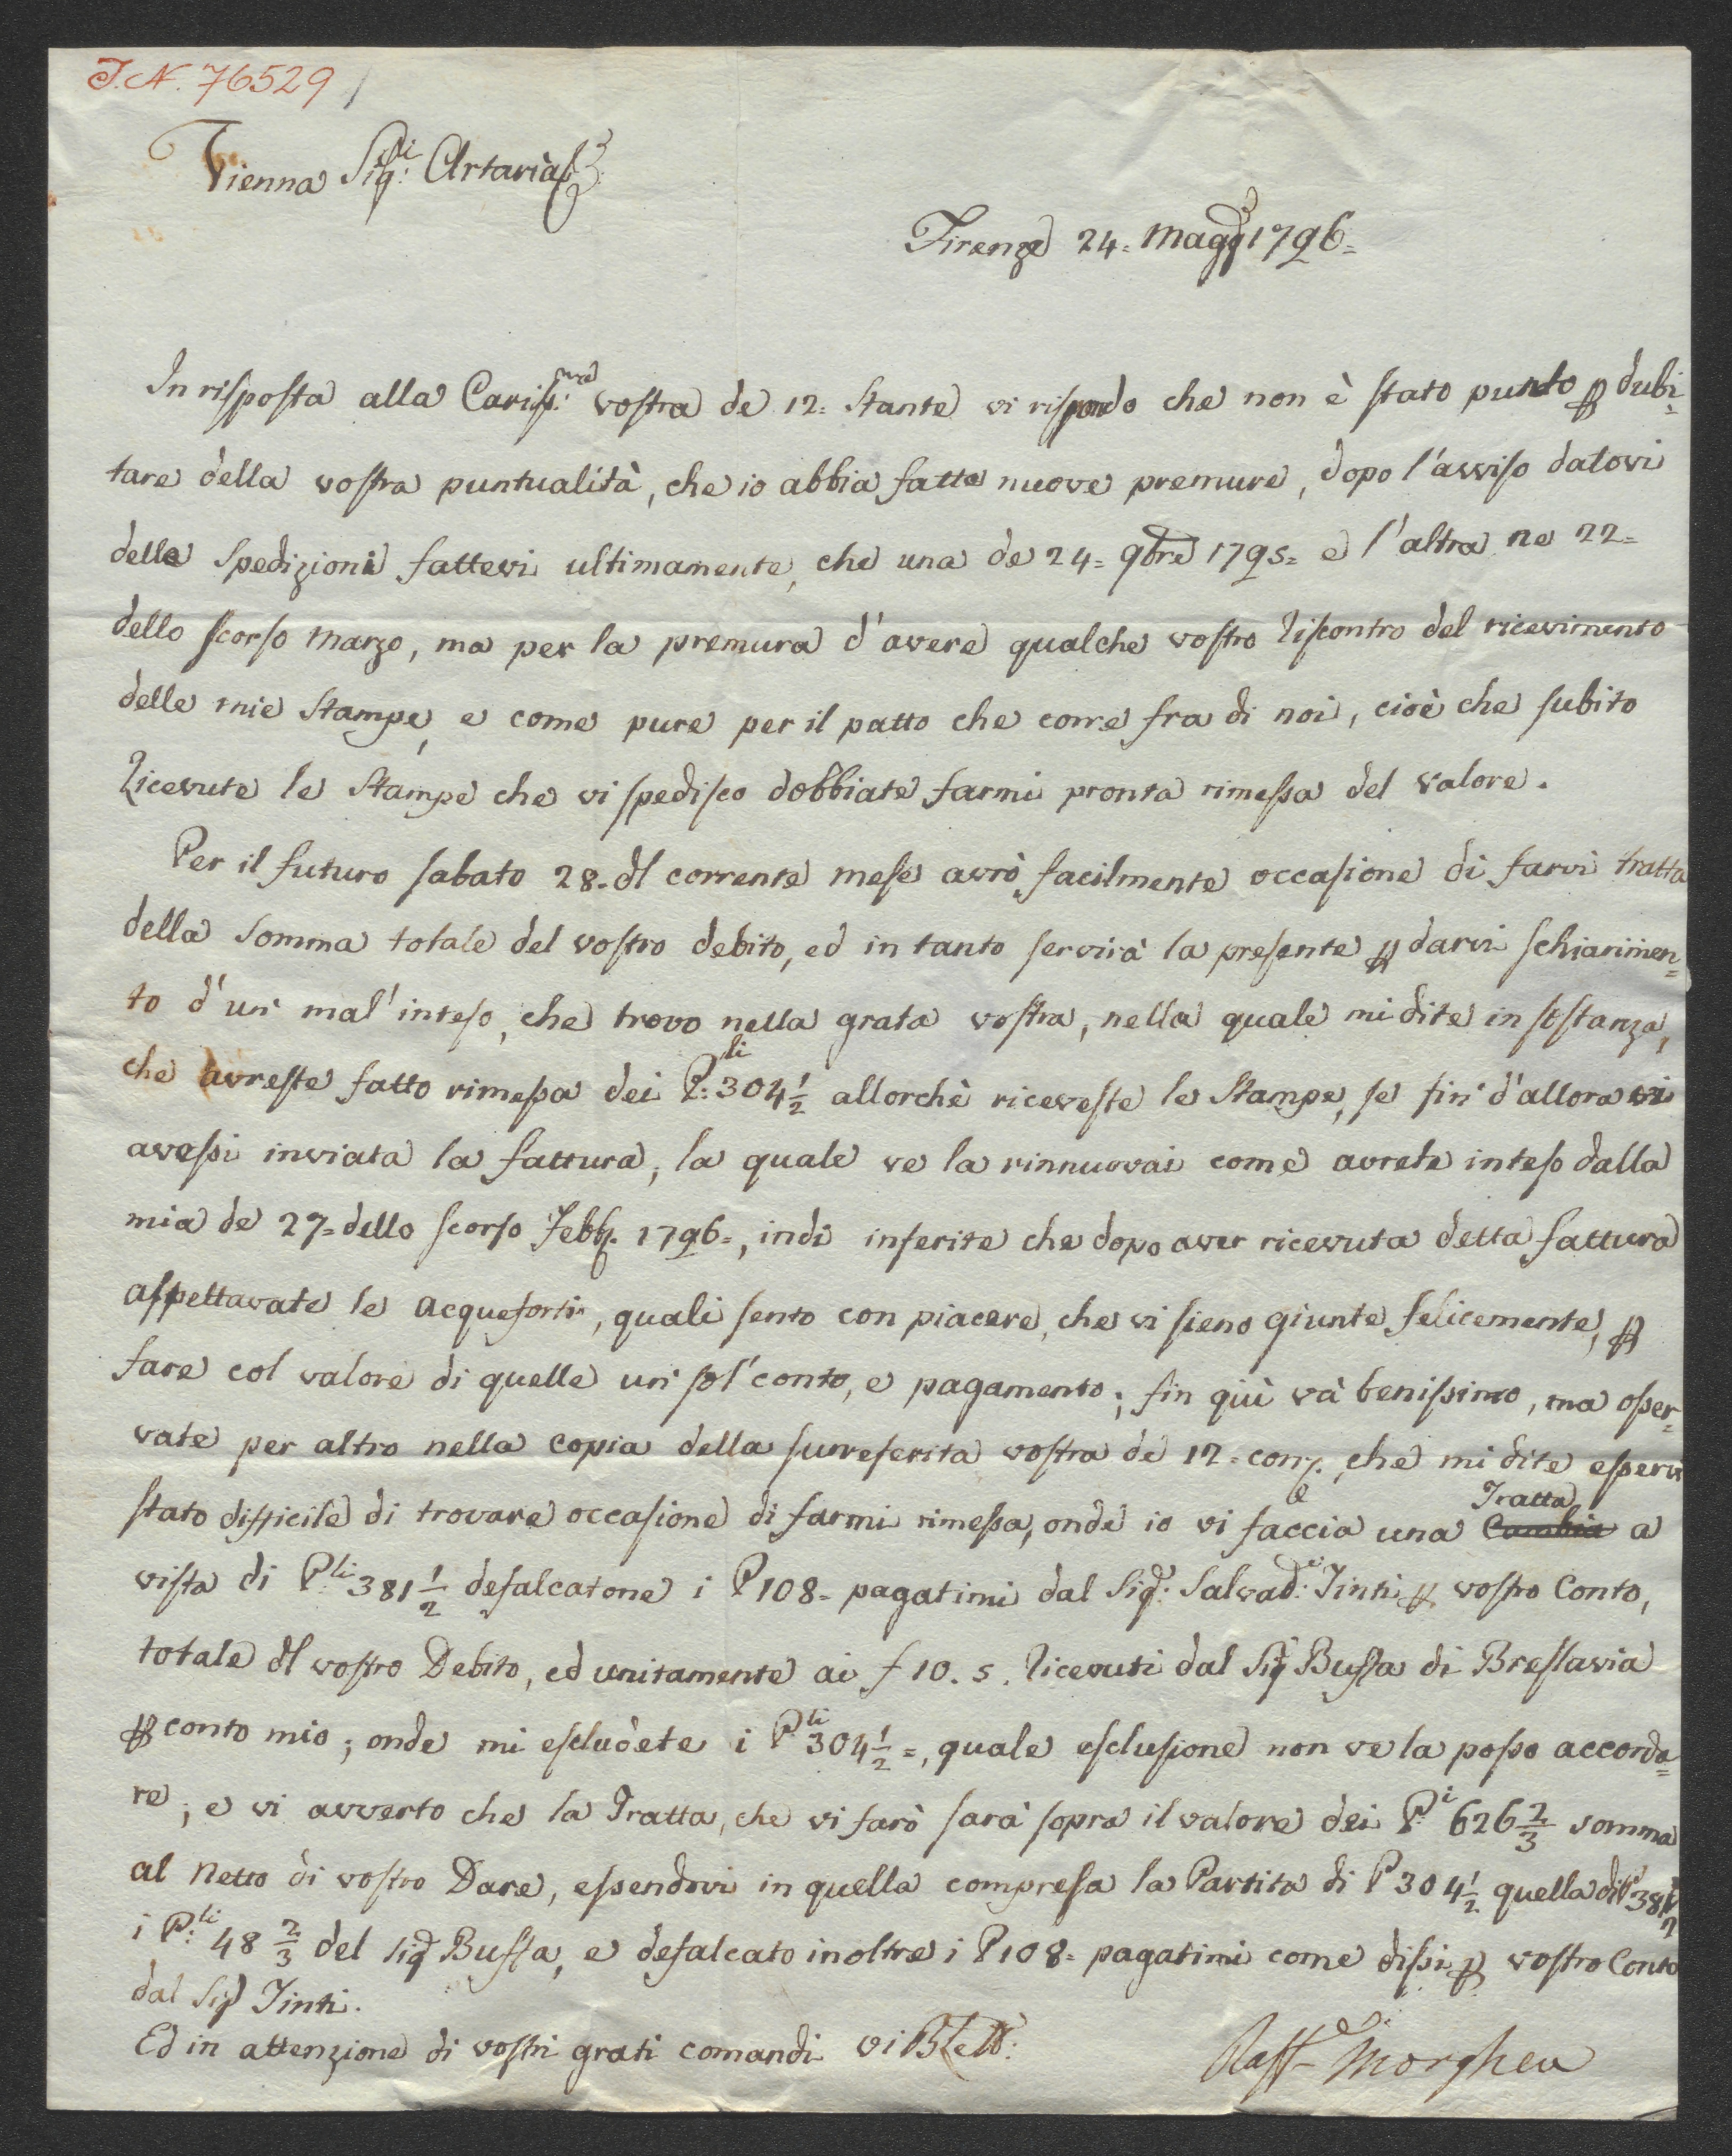 I.N. 76529
Vienna Sig:ri Artaria
Firenze 24= Magg: 1796=
In risposta alla Cariss:ma vostra de 12= stante vi rispondo che non è stato punto p dubi=
tare della vostra puntualità, che io abbia fatte nuove premure, dopo l'avviso datovi
delle spedizioni fattevi ultimamente, che una de 24= 9bre 1795= e l'altra ne 22=
dello scorso Marzo, ma per la premura d'avere qualche vostro riscontro del ricevimento
delle mie Stampe, e come pure per il patto che corre fra di noi, cioè che subito
ricevute le Stampe che vi spedisco dobbiate farmi pronta rimessa del valore.
Per il futuro sabato 28= dl corrente mese avrò facilmente occasione di farvi tratta
della somma totale del vostro debito, ed in tanto servirà la presente p darvi schiarimen=
to d'un' mal'inteso, che trovo nella grata vostra, nella quale mi dite in sostanza,
che avreste fatto rimessa dei P:li 304 1/2 allorchè riceveste le Stampe, se fin' d'allora vi
avessi inviata la fattura, la quale ve la rinnuovai come avrete inteso dalla
mia de 27= dello scorso Febb. 1796=, indi inferite che dopo aver ricevuta detta fattura
aspettavate le acqueforti, quali sento con piacere, che vi sieno giunte felicemente, p
fare col valore di quelle un' sol' conto, e pagamento; fin quì và benissimo, ma osser=
vate per altro nella copia della surreferita vostra de 12= corr. che mi dite esservi
stato difficile di trovare occasione di farmi rimessa, onde io vi faccia una Cambia Tratta a
vista di P:li 381 1/2 defalcatone i P 108= pagatimi dal Sig: Salvad: Tinti p vostro Conto,
totale dl vostro Debito, ed unitamente ai f 10. 5. ricevuti dal Sig Bussa di Breslavia
p conto mio; onde mi escludete i P:li 304 1/2=, quale esclusione non ve la posso accorda=
re; e vi avverto che la Tratta, che vi farò sarà sopra il valore dei P:i 626 2/3 somma
al Netto di vostro Dare, essendovi in quella compresa la Partita di P 304 1/2 quella di P 381 1/2
i P:li 48 2/3 del Sig Bussa, e defalcato inoltre i P 108= pagatimi come dissi p vostro Conto
dal Sig Tinti.
Ed in attenzione di vostri grati comandi vi
Raff Morghen